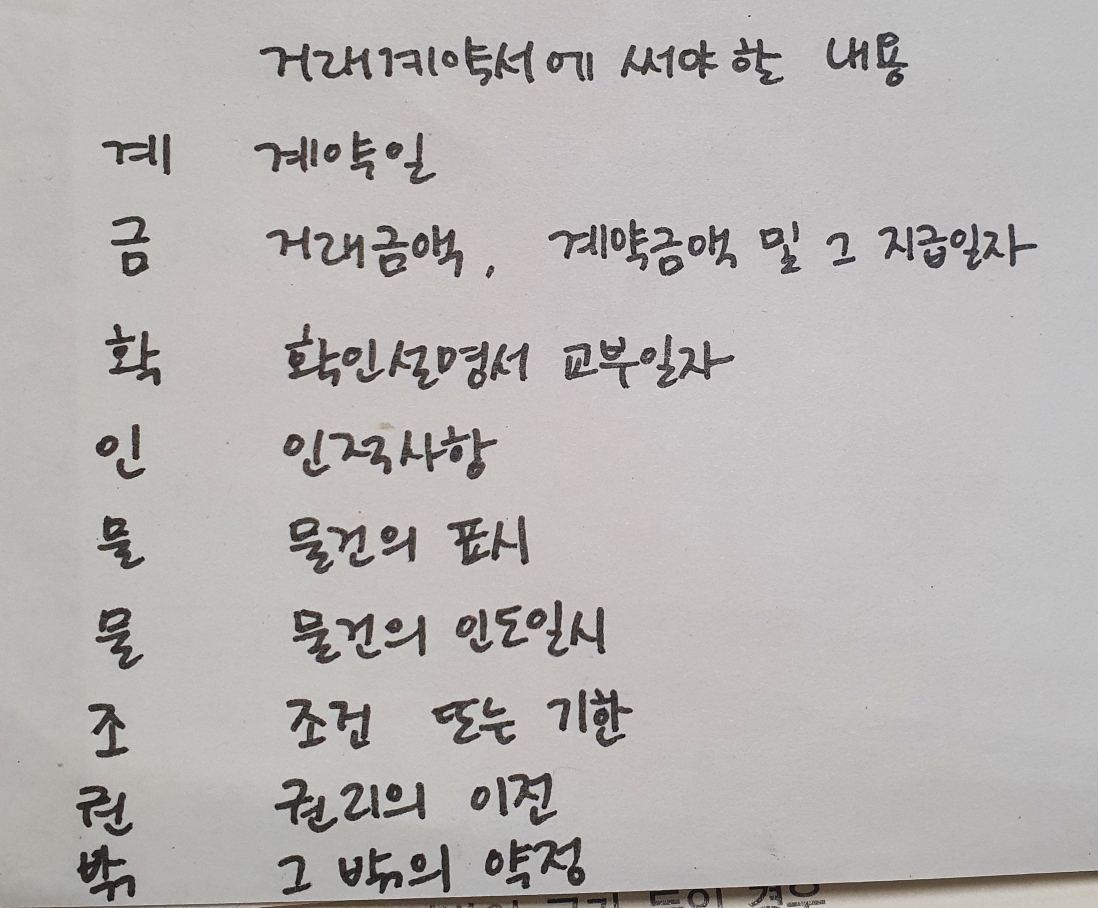 거래계약서에 써야 할 내용
계 계약일
금 거래금액, 계약금액 및 그 지급일자
확 확인설명서 교부일자
인 인적사항
물 물건의 표시
물 물건의 인도일시
조 조건 또는 기한
권 권리의 이전
밖 그 밖의 약정